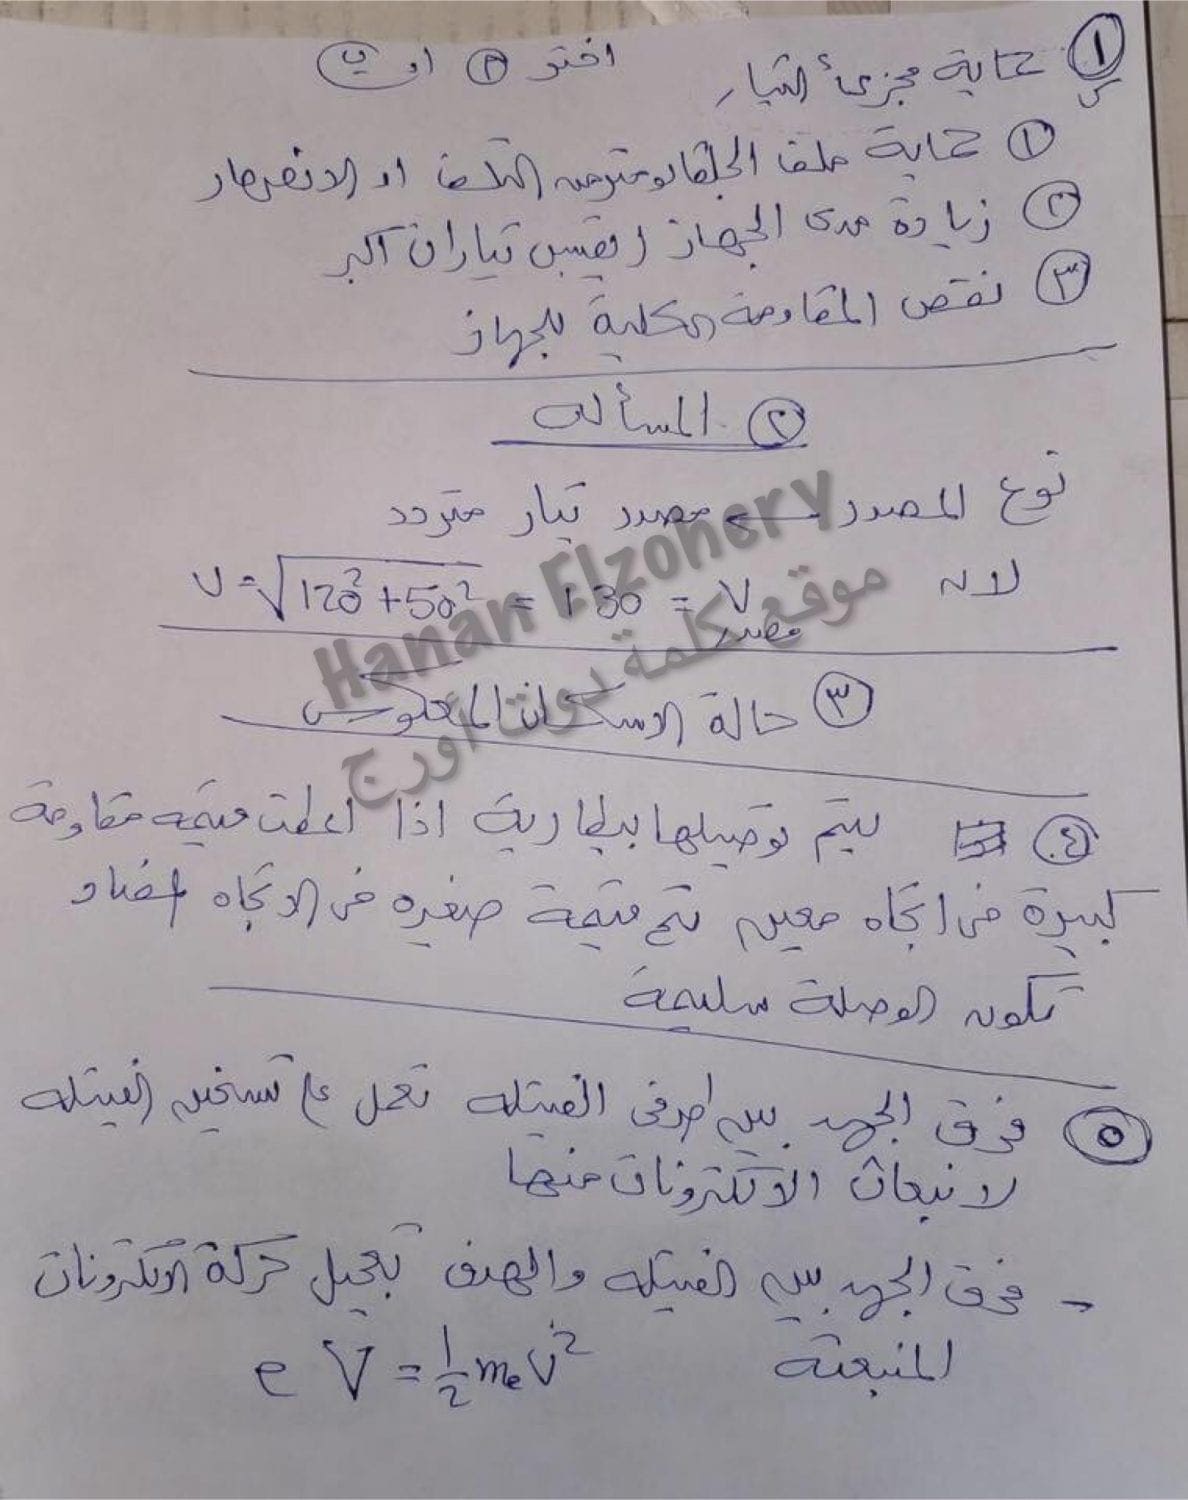 س ١ حماية مجزئ التيار اختر ٢ او ب
١ حماية ملف الجلفانومتر من التلف او الانصهار
٢ زيادة مدى الجهاز ليقيس تيارات اكبر
٣ نقص المقاومة الكلية للجهاز
٢ المسألة
نوع المصدر مصدر تيار متردد
لانه V = √120² + 50² = 130 = V مصدر
٣ حالة الاسكان المعكوس
٤ يتم توصيلها ببطارية اذا اعطت قيمه مقاومة
كبيرة فى اتجاه معين ثم قيمة صغيره فى الاتجاه المضاد
تكون الوصلة سليمة
٥ فرق الجهد بين طرفى الفتيله تعمل على تسخين الفتيله
لانبعاث الالكترونات منها
- فرق الجهد بين الفتيله والهدف تعجيل حركة الالكترونات
المنبعثة eV = 1/2 mₑv²
Hanan Elzohery
موقع كلمة دوت أورج